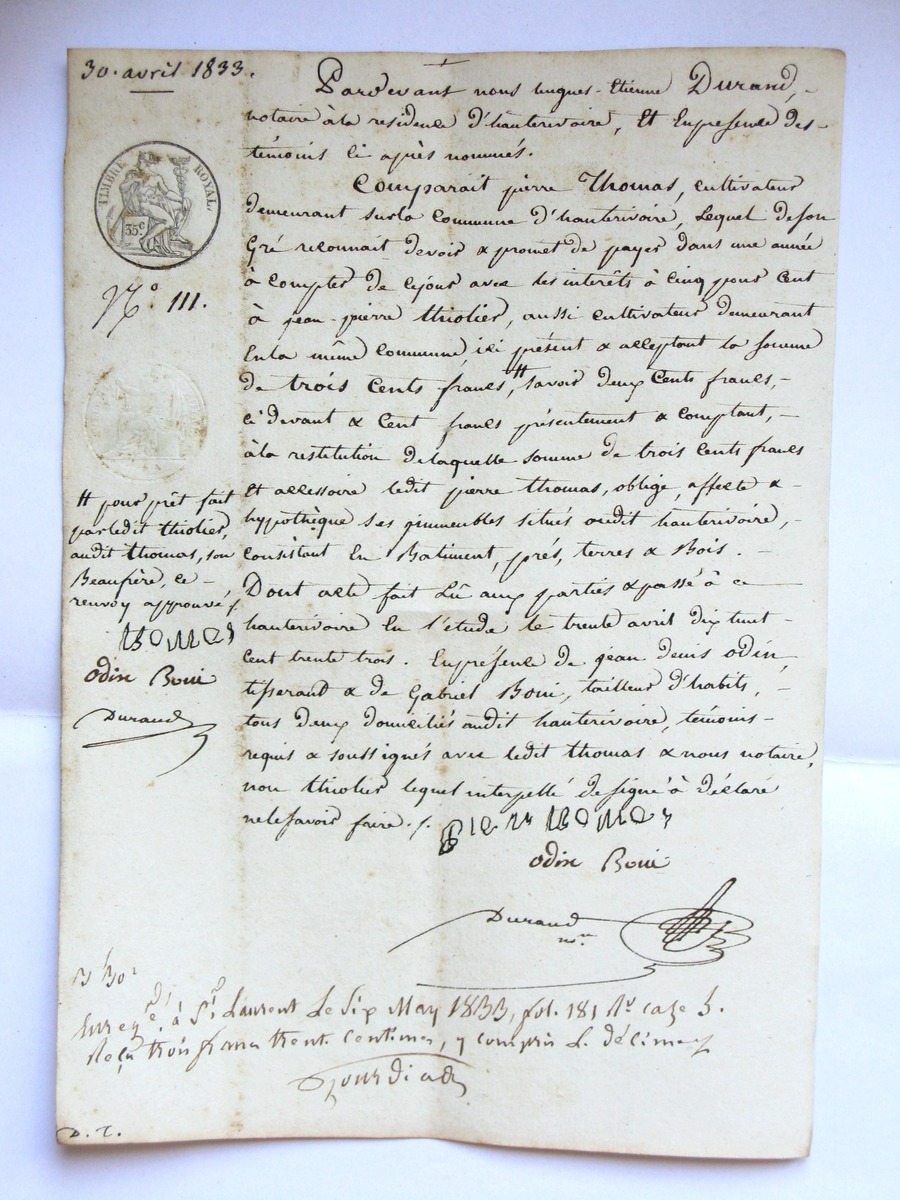 30. avril 1833.
Pardevant nous hugues-Etienne Durand,
notaire à la residence d'hauterivoire, Et En presence des
témoins ci après nommés.
TIMBRE ROYAL
35c
Comparait pierre Thomas, cultivateur
demeurant sur la commune d'hauterivoire, Lequel de son
Gré reconnait devoir & promet de payer dans une année
à compter de cejour avec les interêts à cinq pour cent
N° 111.
à jean-pierre thiolier, aussi cultivateur demeurant
En la même commune, ici présent & acceptant la somme
de trois Cents francs # savoir deux Cents francs,
ci devant & Cent francs présentement & comptant,
à la restitution de laquelle somme de trois Cents francs
Et accessoire ledit pierre thomas, oblige, affecte &
hypothèque ses immeubles situés audit hauterivoire,
Consistant En Batiment, prés, terres & Bois.
# pour prêt fait
par ledit thiolier,
audit thomas, son
Beaufrère, ce
renvoy approuvé
thomas
odin Boui
Durand
Dont acte fait Lû aux parties & passé à
hauterivoire En l'étude le trente avril dix huit
Cent trente trois. En présence de jean denis odin,
tisserant & de Gabriel Boui, tailleur d'habits,
tous deux domiciliés audit hauterivoire, témoins
requis & soussignés avec ledit thomas & nous notaire,
non thiolier lequel interpellé de signé à déclaré
ne le savoir faire.
Pierre thomas
odin Boui
Durand
nre
3f 30c
Enregé. à St Laurent Le Six May 1833, fol. 181 Ro case 5.
Reçu trois francs trente Centimes, y compris le décime
D. T.